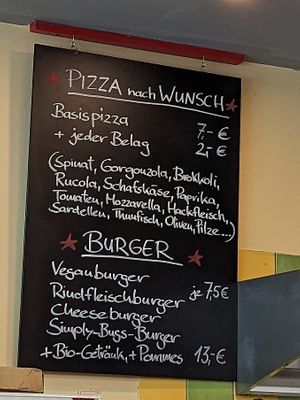 PIZZA nach WUNSCH
Basispizza 7,-€
+ jeder Belag 2,-€
(Spinat, Gorgonzola, Brokkoli,
Rucola, Schafskäse, Paprika,
Tomaten, Mozzarella, Hackfleisch,
Sardellen, Thunfisch, Oliven, Pilze...)
BURGER
Veganburger
Rindfleischburger je 7,5€
Cheeseburger
Simply-Bugs-Burger
+ Bio-Getränk, + Pommes 13,-€